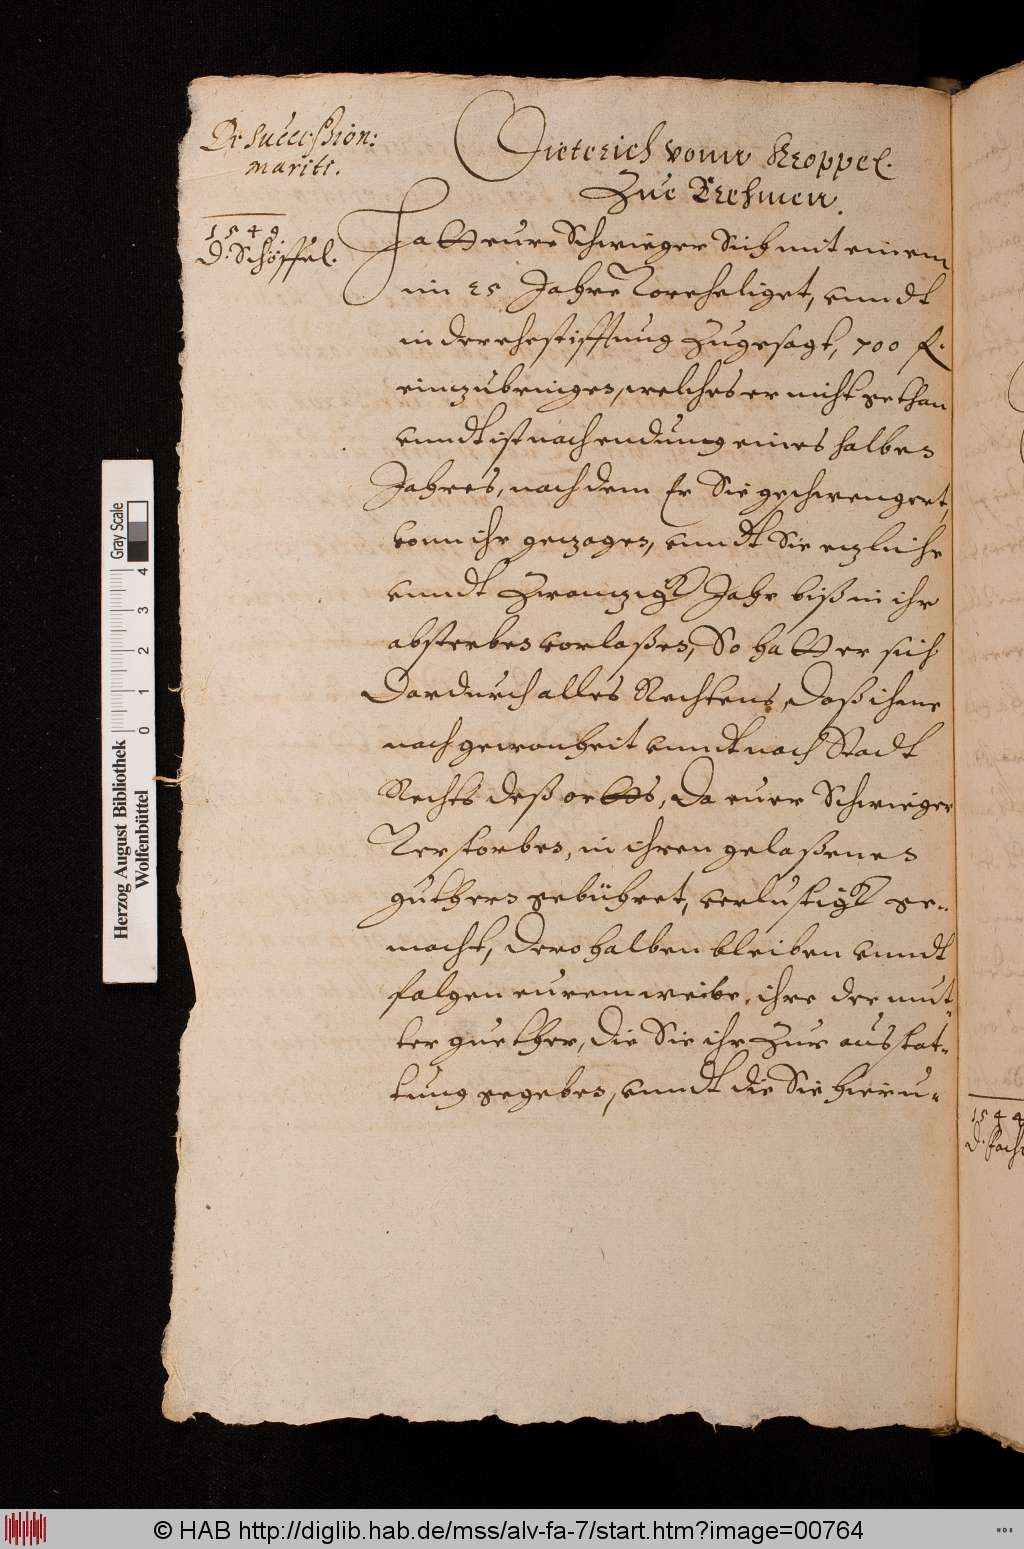 De Succession:
mariti.
1549.
D. Schöffel.
Dieterich vonn Kroppel.
Zue Brehmen.
Hatt eure Schwieger Sich mit einem
im 25 Jahre Voreheliget, unndt
in der ehestifftung zugesagt, 700 fl.
einzubringen, welches er nicht gethan
unndt ist nach endung eines halben
Jahres, nach dem Er Sie geschwengert,
vonn ihr gezogen, unndt Sie etzliche
unndt zwanzigk Jahr biß in ihr
absterben vorlaßen, So hatt er sich
dardurch alles Rechtens, daß ihme
nach gewonheit unndt nach Stadt
Rechts deß orttes, da euer Schwieger
Verstorben, in ihren gelaßenen
guthern gebühret, verlustigk ge-
macht, derohalben bleiben unndt
folgen eurem weibe, ihre der mut-
ter guether, die Sie ihr zur ausstat-
tung gegeben, unndt die Sie hieru-
1544
Herzog August Bibliothek
Wolfenbüttel
Gray Scale
0 1 2 3 4
© HAB http://diglib.hab.de/mss/alv-fa-7/start.htm?image=00764